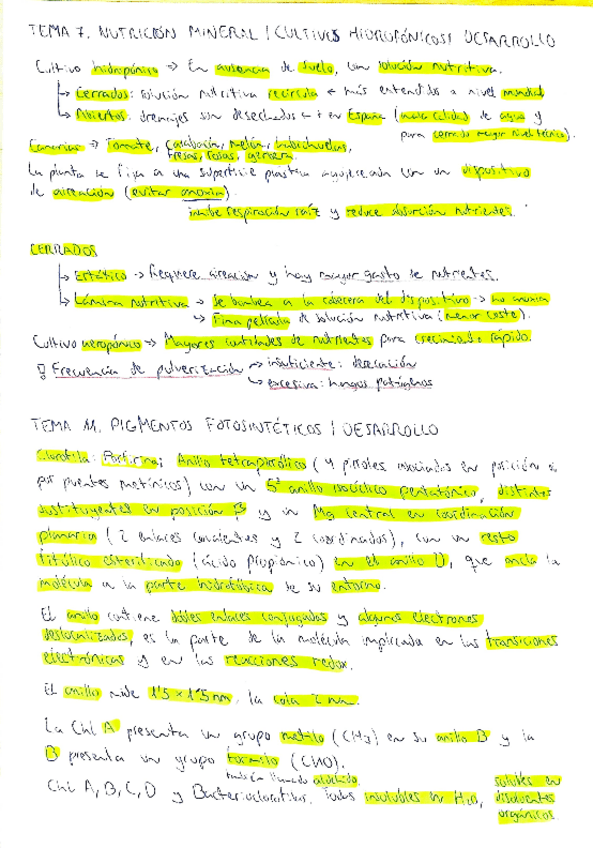 TEMA 7. NUTRICIÓN MINERAL | CULTIVOS HIDROPÓNICOS | DESARROLLO
Cultivo hidropónico → En ausencia de suelo, con solución nutritiva.
↳ Cerrados: solución nutritiva recircula ← más extendidos a nivel mundial
↳ Abiertos: drenajes son desechados ← + en España (mala calidad de agua y
para cerrado mayor nivel técnico).
Canarias → Tomate, calabacín, melón, habichuelas,
fresas, rosas, gerbera.
La planta se fija a una superficie plástica agujereada con un dispositivo
de aireación (evitar anoxia).
inhibe respiración raíz y reduce absorción nutrientes.
CERRADOS
↳ Estático → Requiere aireación y hay mayor gasto de nutrientes.
↳ Lámina nutritiva → Se bombea a la cabecera del dispositivo → no anoxia
↳ Fina película de solución nutritiva (menor coste).
Cultivo aeropónico → Mayores cantidades de nutrientes para crecimiento rápido.
Frecuencia de pulverización → insuficiente: desecación
↳ excesiva: hongos patógenos
TEMA 11. PIGMENTOS FOTOSINTÉTICOS | DESARROLLO
Clorofila: Porfirina; Anillo tetrapirrólico (4 pirroles asociados en posición α
por puentes metínicos) con un 5º anillo isocíclico pentatónico, distintos
sustituyentes en posición β y un Mg central en coordinación
planaria (2 enlaces covalentes y 2 coordinados), con un resto
fitólico esterificado (ácido propiónico) en el anillo D, que ancla la
molécula a la parte hidrofóbica de su entorno.
El anillo contiene dobles enlaces conjugados y algunos electrones
deslocalizados, es la parte de la molécula implicada en las transiciones
electrónicas y en las reacciones redox.
El anillo mide 1'5 x 1'5 nm, la cola 2 nm.
La Chl A presenta un grupo metilo (CH3) en su anillo B y la
B presenta un grupo formilo (CHO).
también llamado aldehído.
Chl A, B, C, D y Bacterioclorofilas. Todas insolubles en H2O, solubles en
disolventes
orgánicos.